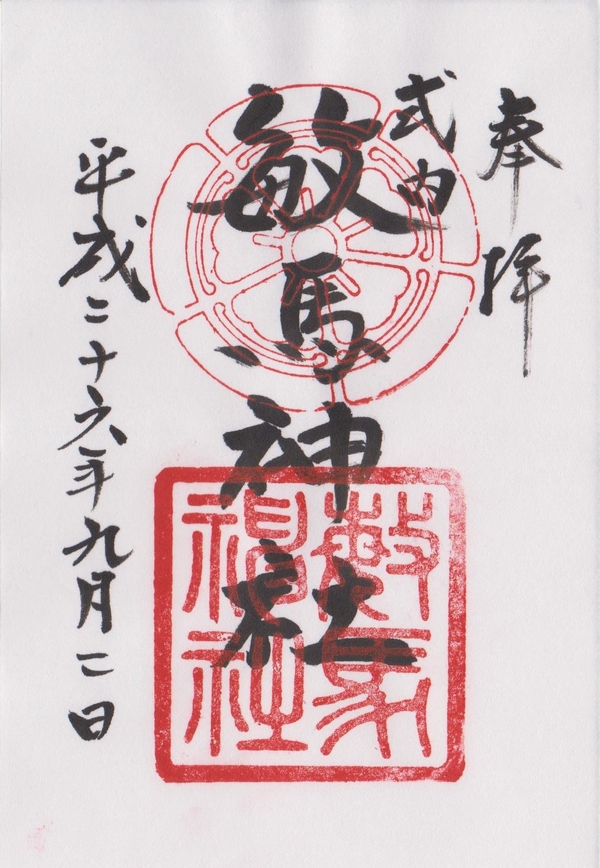 奉拝
式内
敏馬神社
平成二十六年九月二日
敏馬神社